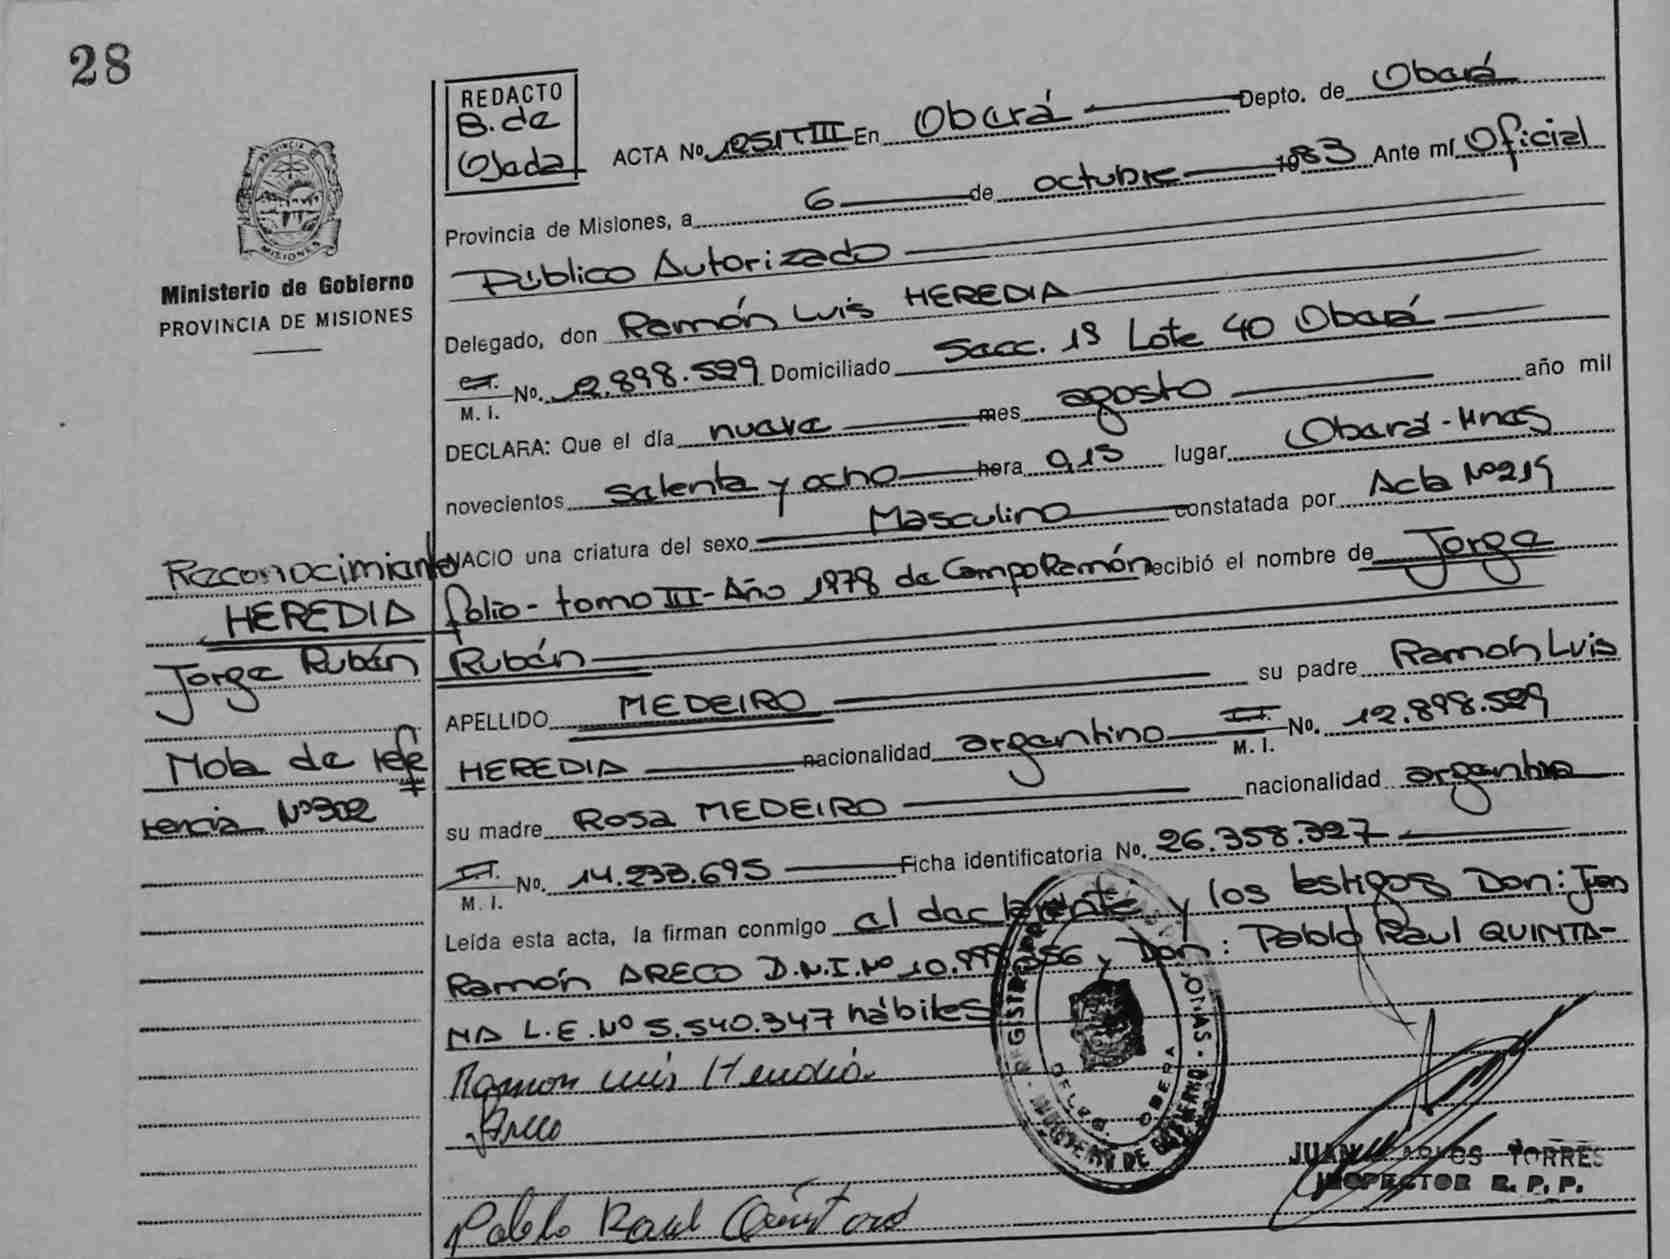 28
REDACTO
B. de
Ojeda
ACTA No 125 T III En Oberá Depto. de Oberá
Provincia de Misiones, a 6 de octubre 1983 Ante mí Oficial
Público Autorizado
PROVINCIA DE
MISIONES
Ministerio de Gobierno
PROVINCIA DE MISIONES
Delegado, don Ramón Luis HEREDIA
M. I. No. 12.898.529 Domiciliado Secc. 13 Lote 40 Oberá
DECLARA: Que el día nueve mes agosto año mil
novecientos setenta y ocho hora 9,15 lugar Oberá - Mnes
NACIO una criatura del sexo Masculino constatada por Acta Nº 219
folio - tomo III - Año 1978 de Campo Ramón recibió el nombre de Jorge
Rubén
APELLIDO MEDEIRO su padre Ramón Luis
HEREDIA nacionalidad argentino M. I. No. 12.898.529
su madre Rosa MEDEIRO nacionalidad argentina
M. I. No. 14.233.695 Ficha identificatoria No. 26.358.327
Leída esta acta, la firman conmigo el declarante y los testigos Don: Juan
Ramón ARECO D.N.I. Nº 10.999.356 y Don: Pablo Raul QUINTA-
NA L.E. Nº 5.540.347 hábiles
Reconocimiento
HEREDIA
Jorge Rubén
Nota de refe
rencia Nº 302
Ramon Luis Heredia
Areco
Pablo Raul Quintana
DELEG. OBERA
MINISTERIO DE GOBIERNO
JUAN CARLOS TORRES
INSPECTOR R. P. P.